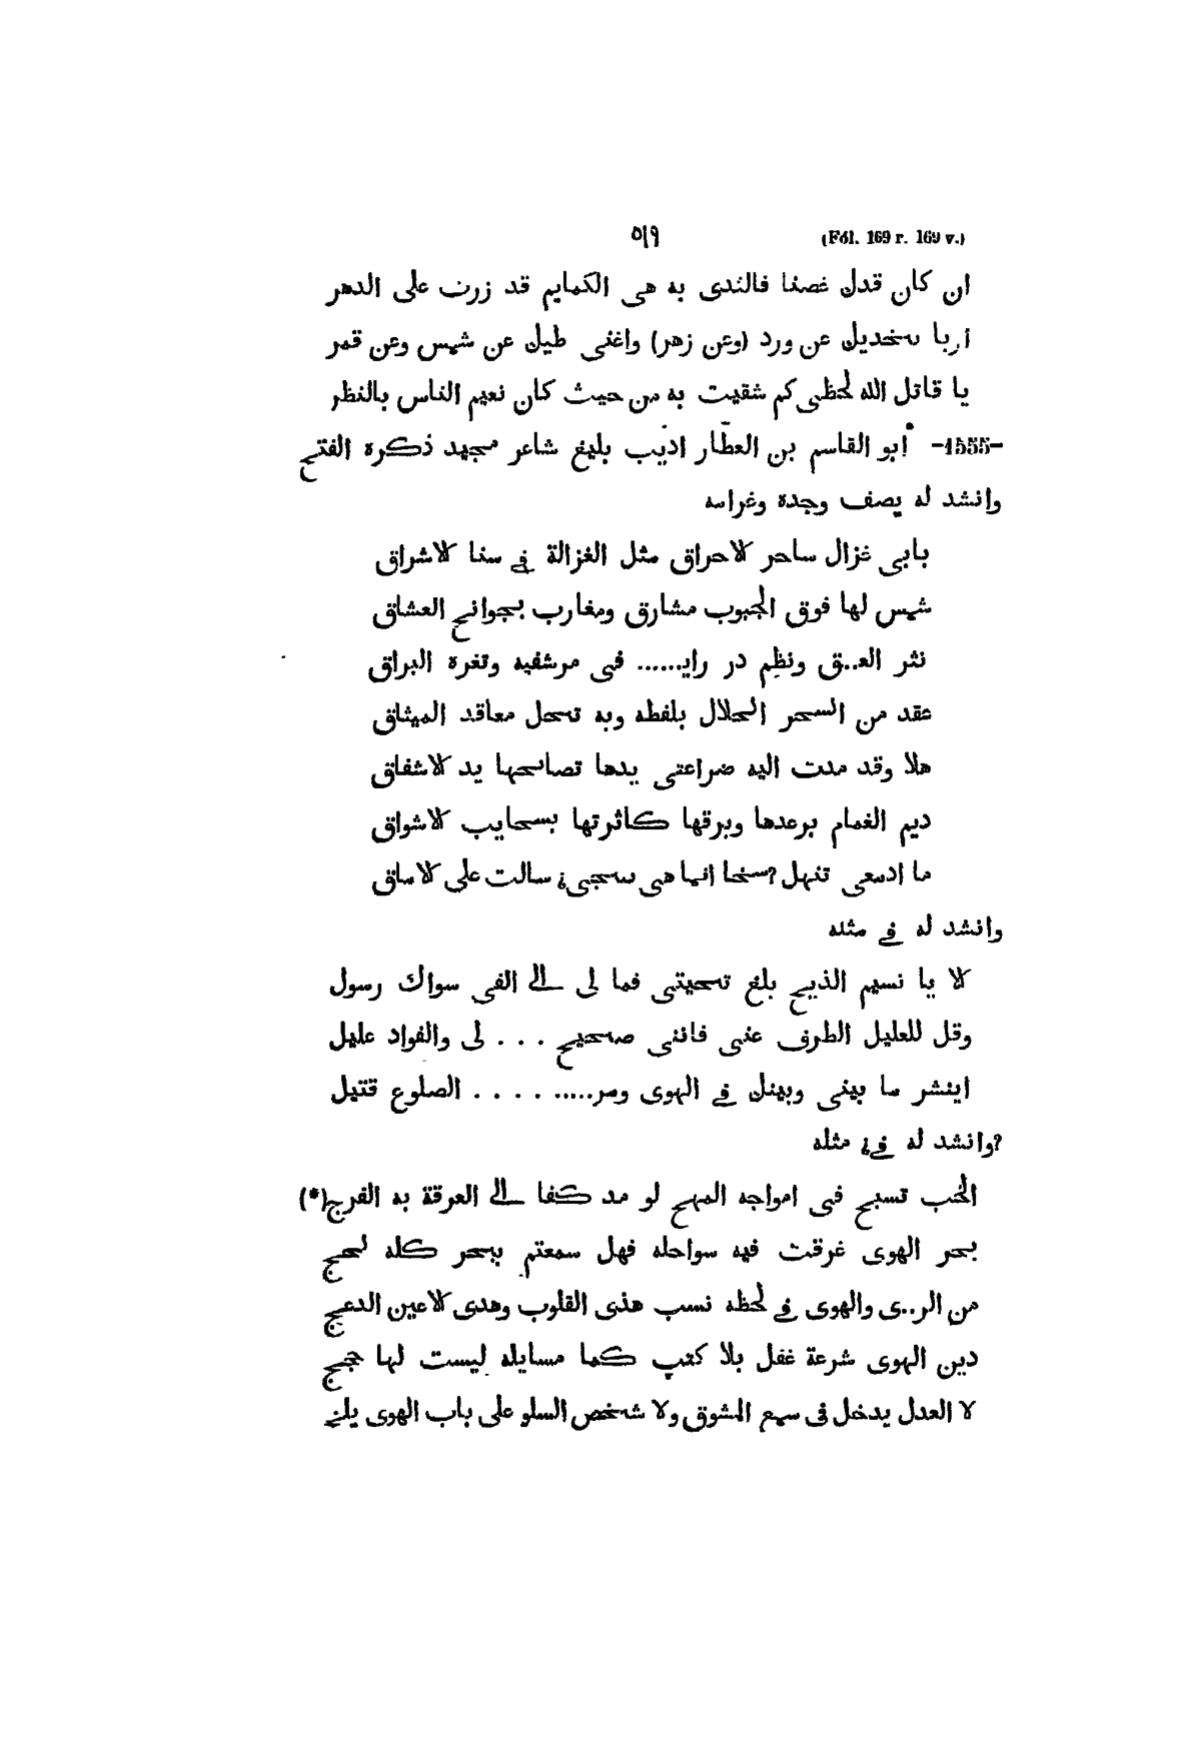 (Fól. 169 r. 169 v.) ٥١٩
ان كان قدك غصنا فالندى به هى الكمايم قد زرت على الدهر
اربا بخديك عن ورد (وعن زهر) واغنى طيك عن شمس وعن قمر
يا قاتل الله لحظى كم شقيت به من حيث كان نعيم الناس بالنظر
-1555- أبو القاسم بن العطّار اديب بليغ شاعر مجيد ذكره الفتح
وانشد له يصف وجده وغرامه
بابى غزال ساحر الاحراق مثل الغزالة في سنا الاشراق
شمس لها فوق الجيوب مشارق ومغارب بجوانح العشاق
نثر العـ..ـق ونظم در رايـ...... فى مرشفيه وثغره البراق
عقد من السحر الحلال بلفظه وبه تحل معاقد الميثاق
هلا وقد مدت اليه ضراعتى يدها تصافحها يد الاشفاق
ديم الغمام برعدها وبرقها كاثرتها بسحايب الاشواق
ما ادمعى تنهل ?سنحا انما هى مهجتى¿ سالت على الاماق
وانشد له في مثله
الا يا نسيم الذيح بلغ تحيتى فما لى الى الفى سواك رسول
وقل للعليل الطرف عنى فاننى صحيح . . . لى والفواد عليل
اينشر ما بينى وبينك في الهوى ومر..... . . . . الصلوع قتيل
?وانشد له في¿ مثله
الحب تسبح فى امواجه المهج لو مد كفا الى الغرقة به الفرج(*)
بحر الهوى غرقت فيه سواحله فهل سمعتم ببحر كله لحج
من الر..ى والهوى في لحظه نسب هذى القلوب وهدى الاعين الدعج
دين الهوى شرعة غفل بلا كتب كما مسايله ليست لها حجج
لا العدل يدخل فى سمع المشوق ولا شخص السلو على باب الهوى يلج